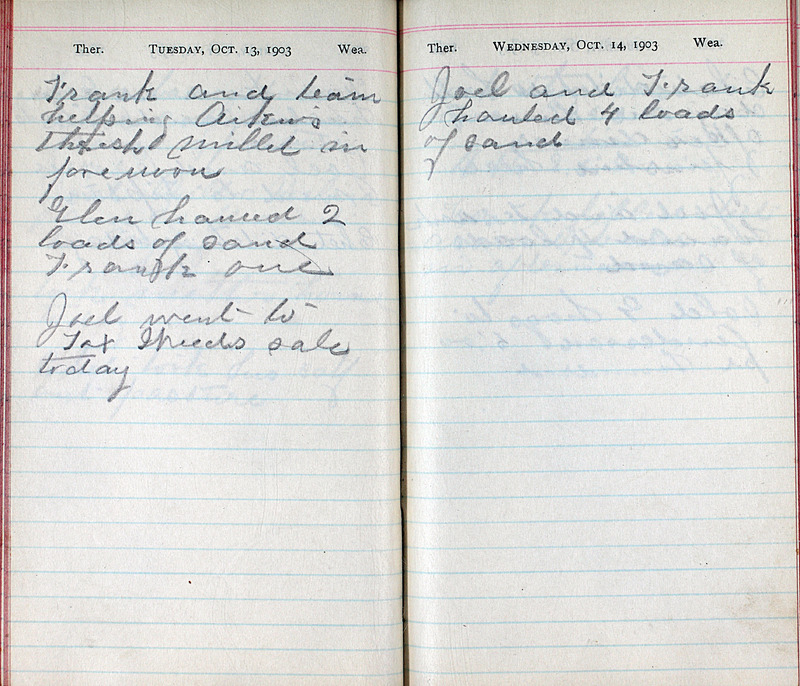 Ther. TUESDAY, OCT. 13, 1903 Wea.
Frank and team
helping Aikens
thresh millet in
forenoon
Glen hauled 2
loads of sand
Frank one
Joel went to
sale
today
Ther. WEDNESDAY, OCT. 14, 1903 Wea.
Joel and Frank
hauled 4 loads
of sand